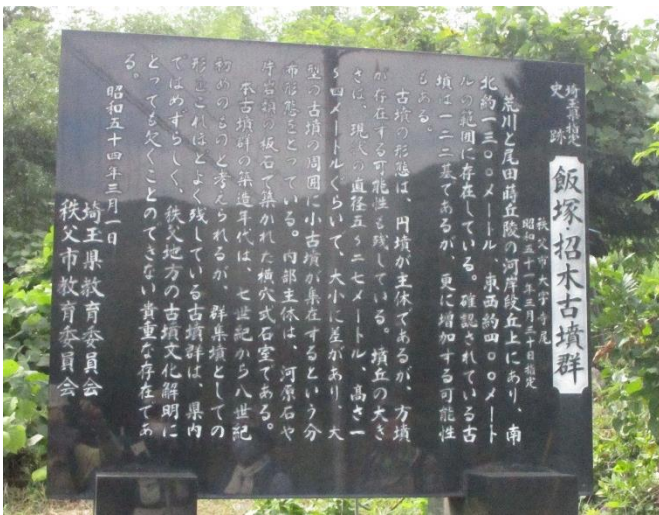 埼玉県指定
史跡
飯塚・招木古墳群
秩父市大字寺尾
昭和五十一年三月三十日指定
荒川と尾田蒔丘陵の河岸段丘上にあり、南
北約一三〇〇メートル、東西約四〇〇メート
ルの範囲に存在している。確認されている古
墳は一二二基であるが、更に増加する可能性
もある。
古墳の形態は、円墳が主体であるが、方墳
が存在する可能性も残している。墳丘の大き
さは、現状の直径五〜二七メートル、高さ一
〜四メートルぐらいで、大小に差があり、大
型の古墳の周囲に小古墳が集在するという分
布形態をとっている。内部主体は、河原石や
片岩類の板石で築かれた横穴式石室である。
本古墳群の築造年代は、七世紀から八世紀
初めのものと考えられるが、群集墳としての
形をこれほどよく残している古墳群は、県内
ではめずらしく、秩父地方の古墳文化解明に
とっても欠くことのできない貴重な存在であ
る。
昭和五十四年三月一日
埼玉県教育委員会
秩父市教育委員会